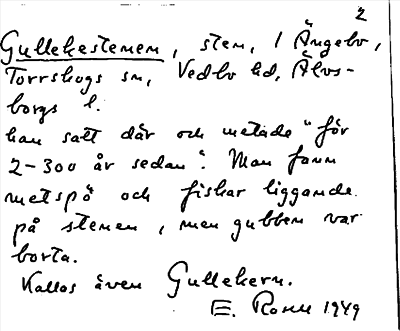 2
Gullekestenen, sten, i Ängebo,
Torrskogs sn, Vedbo hd, Älvs-
borgs l.
han satt där och metade "för
2-300 år sedan". Man fann
metspö och fiskar liggande
på stenen, men gubben var
borta.
Kallas även Gullekern.
E. Rosell 1949